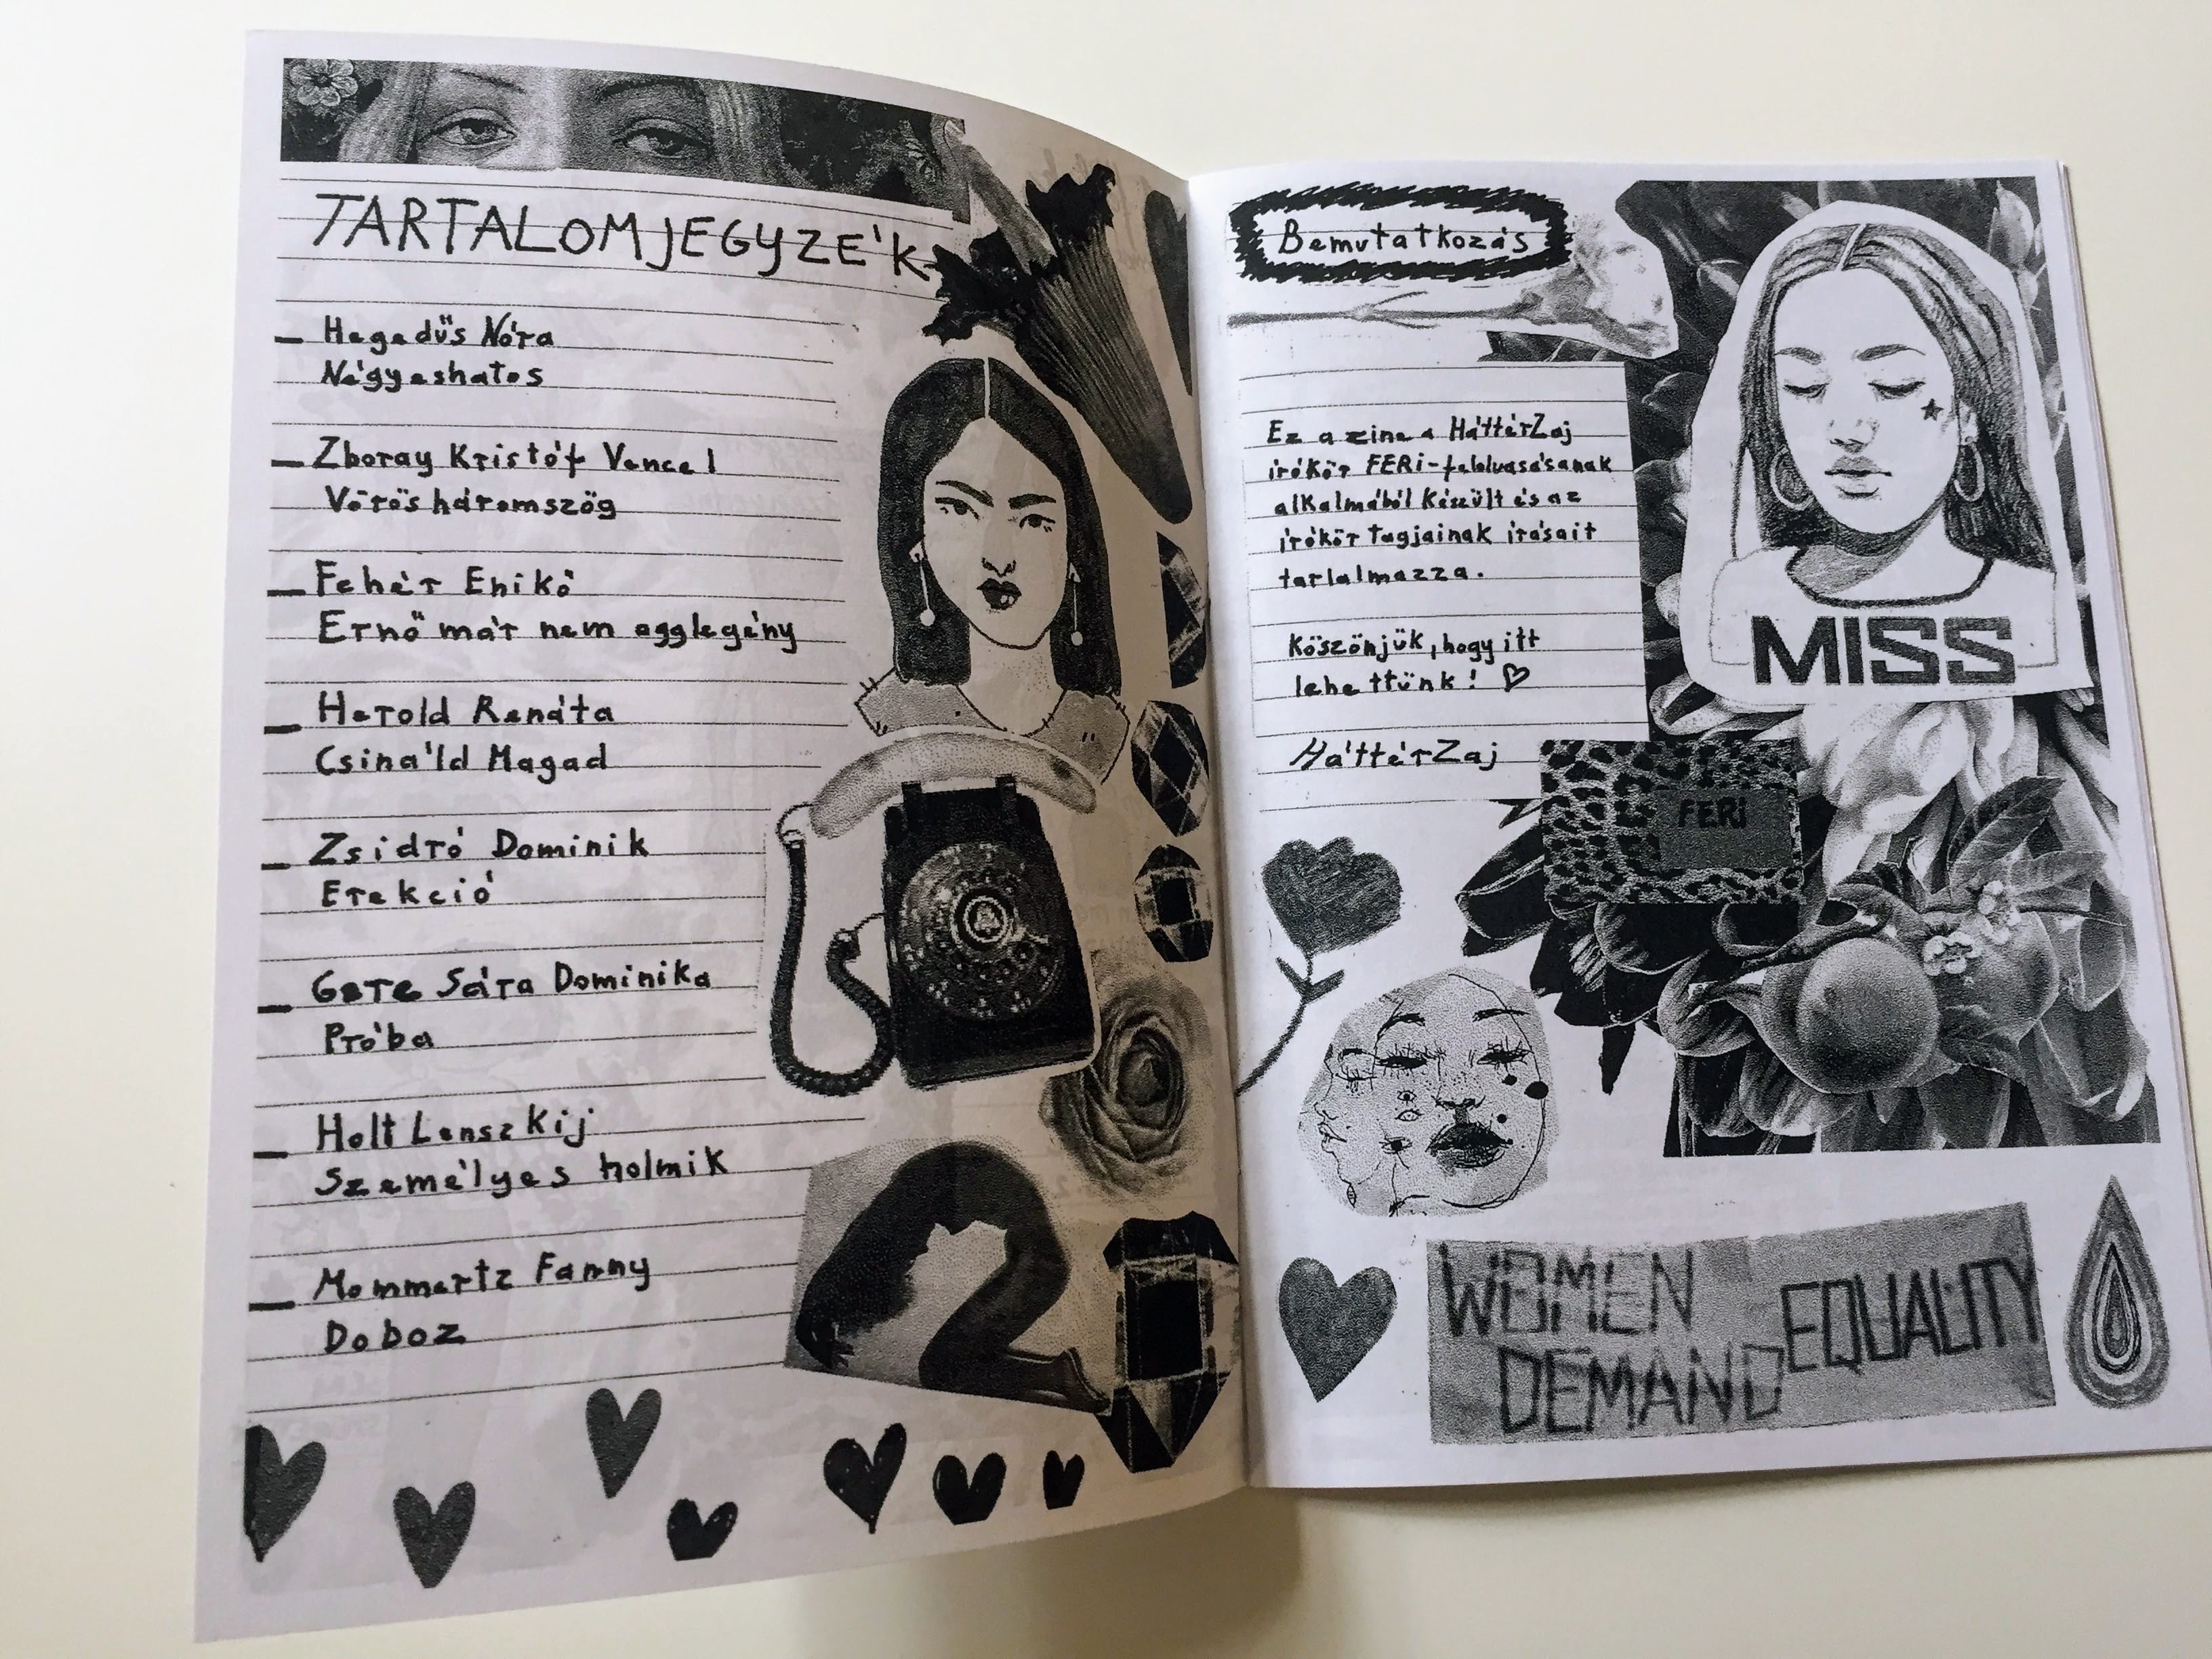 TARTALOMJEGYZÉK
– Hegedűs Nóra
Négyeshatos
– Zboray Kristóf Vencel
Vörös háromszög
– Fehér Enikő
Ernő már nem agglegény
– Herold Renáta
Csináld Magad
– Zsidró Dominik
Erekció
– Gere Sára Dominika
Próba
– Holt Lenszkij
Személyes holmik
– Mommertz Fanny
Doboz
Bemutatkozás
Ez a zine a HáttérZaj
írókör FERi-felolvasásának
alkalmából készült és az
írókör tagjainak írásait
tartalmazza.
Köszönjük, hogy itt
lehettünk! ♡
HáttérZaj
MISS
FERi
WOMEN
DEMAND EQUALITY